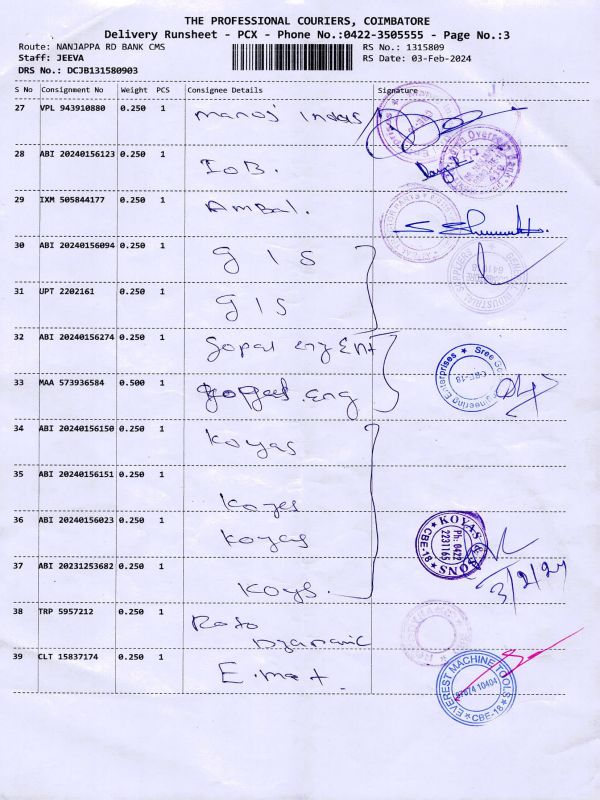 THE PROFESSIONAL COURIERS, COIMBATORE
Delivery Runsheet - PCX - Phone No.:0422-3505555 - Page No.:3
Route: NANJAPPA RD BANK CMS RS No.: 1315809
Staff: JEEVA RS Date: 03-Feb-2024
DRS No.: DCJB131580903
S No Consignment No Weight PCS Consignee Details Signature
27 VPL 943910880 0.250 1 manoj
28 ABI 20240156123 0.250 1 I O B.
29 IXM 505844177 0.250 1 AmBal.
30 ABI 20240156094 0.250 1 G I S
31 UPT 2202161 0.250 1 G I S
32 ABI 20240156274 0.250 1 Gopal eng Ent
33 MAA 573936584 0.500 1 eng
34 ABI 20240156150 0.250 1 Koyas
35 ABI 20240156151 0.250 1 Koyes
36 ABI 20240156023 0.250 1 Koyas
KOYAS & SONS
Ph: 0422
2231165
CBE-18
37 ABI 20231253682 0.250 1 Koys.
3/2/24
38 TRP 5957212 0.250 1 Roto
39 CLT 15837174 0.250 1 E.mat.
EVEREST MACHINE TOOLS
97874 10404
CBE-18